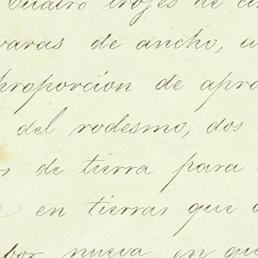 Cuatro trojes de ci
varas de ancho, u
proporcion de apro
del rodesmo, dos
s de tierra para
en tierras que
bor nueva en qu